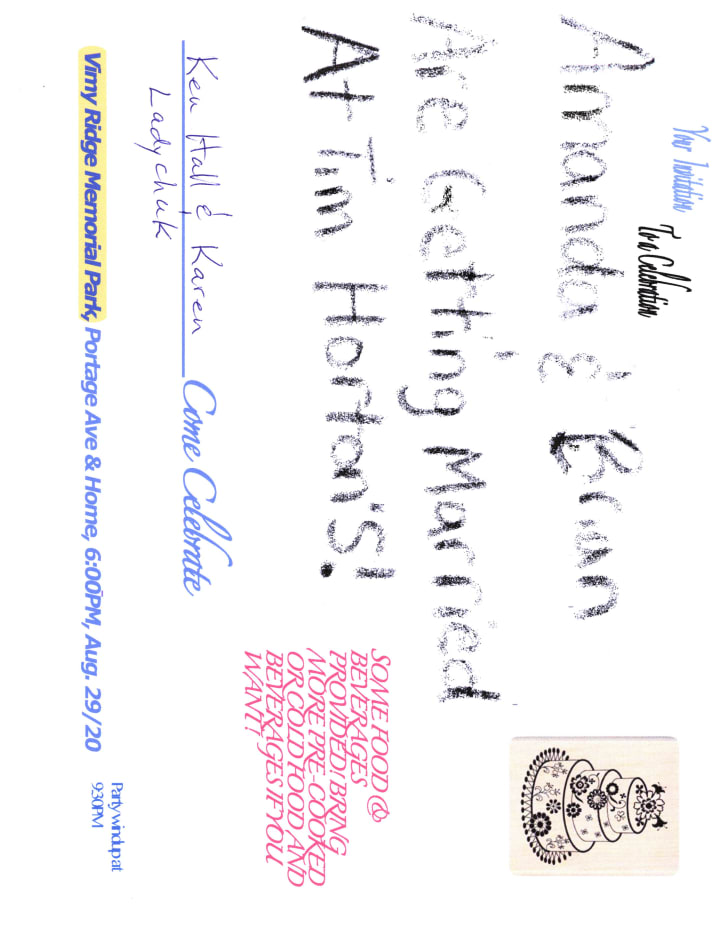 Your Invitation
To a Celebration
Amanda & Brian
Are Getting Married
At Tim Horton's!
SOME FOOD &
BEVERAGES
PROVIDED! BRING
MORE PRE-COOKED
OR COLD FOOD AND
BEVERAGES IF YOU
WANT!
Ken Hall & Karen
Ladychuk
Come Celebrate
Vimy Ridge Memorial Park, Portage Ave & Home, 6:00PM, Aug. 29/20
Party windup at
930PM